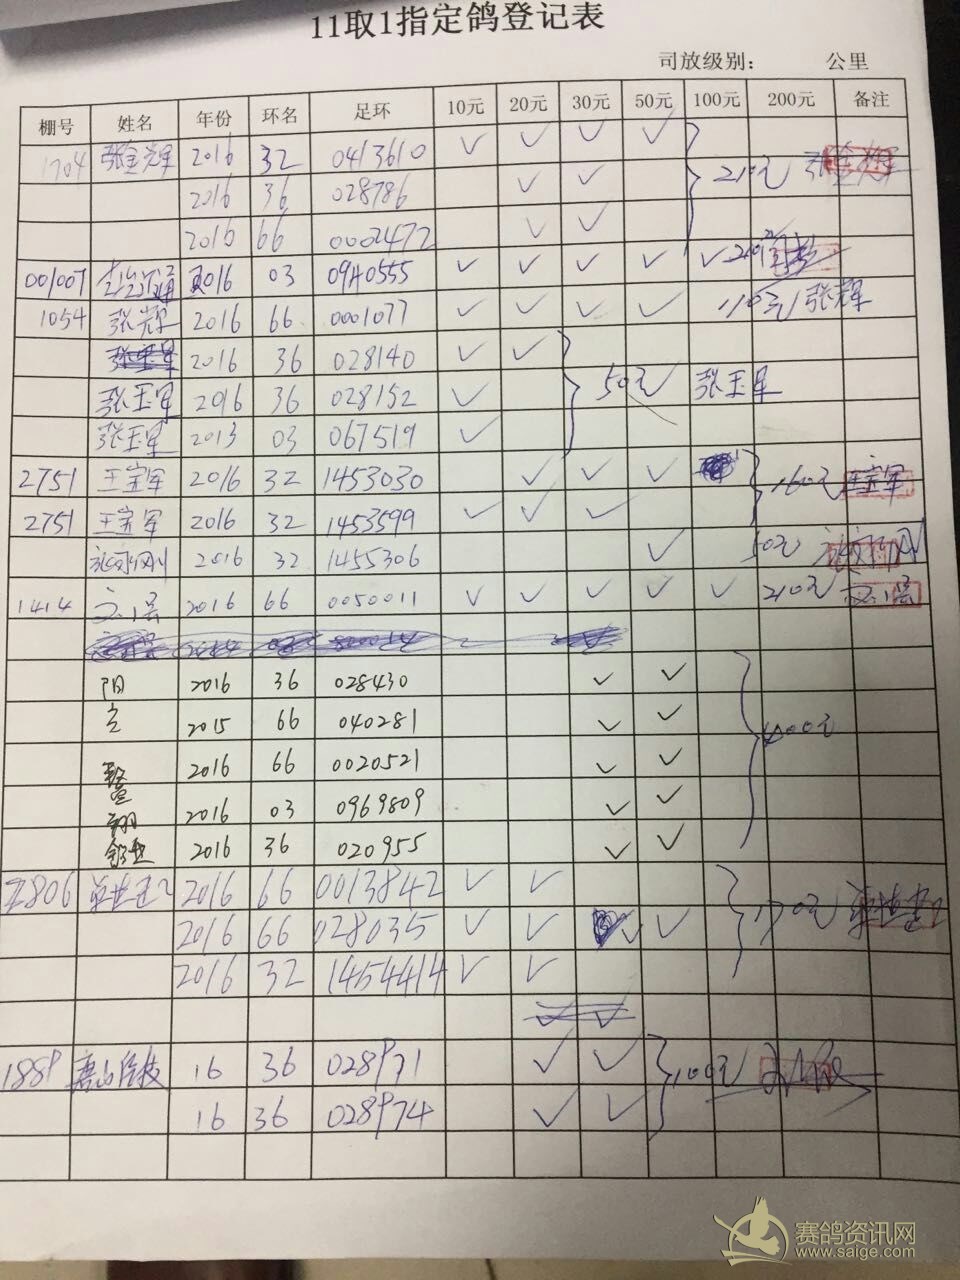 11取1指定鸽登记表
司放级别： 公里
棚号 姓名 年份 环名 足环 10元 20元 30元 50元 100元 200元 备注
1704 2016 32 0413610 ✓ ✓ ✓ ✓
2016 36 028786 ✓ ✓ 210元
2016 66 0002472 ✓ ✓
001007 2016 03 0940555 ✓ ✓ ✓ ✓ ✓ 210元
1054 张辉 2016 66 0001077 ✓ ✓ ✓ ✓ 110元 张辉
2016 36 028140 ✓ ✓
张玉军 2016 36 028152 ✓ 50元 张玉军
张玉军 2013 03 067519 ✓
2751 王宝军 2016 32 1453030 ✓ ✓ ✓ 160元 王宝军
2751 王宝军 2016 32 1453599 ✓ ✓ ✓
2016 32 1455306 ✓ 50元
1414 2016 66 0050011 ✓ ✓ ✓ ✓ ✓ 210元
阳 2016 36 028430 ✓ ✓
2015 66 040281 ✓ ✓ 400元
2016 66 0020521 ✓ ✓
翔 2016 03 0969809 ✓ ✓
2016 36 020955 ✓ ✓
2806 2016 66 0013842 ✓ ✓
2016 66 028035 ✓ ✓ ✓ ✓ 170元
2016 32 1454414 ✓ ✓
1889 16 36 028971 ✓ ✓ 100元
16 36 028974 ✓ ✓
赛鸽资讯网
www.saige.com